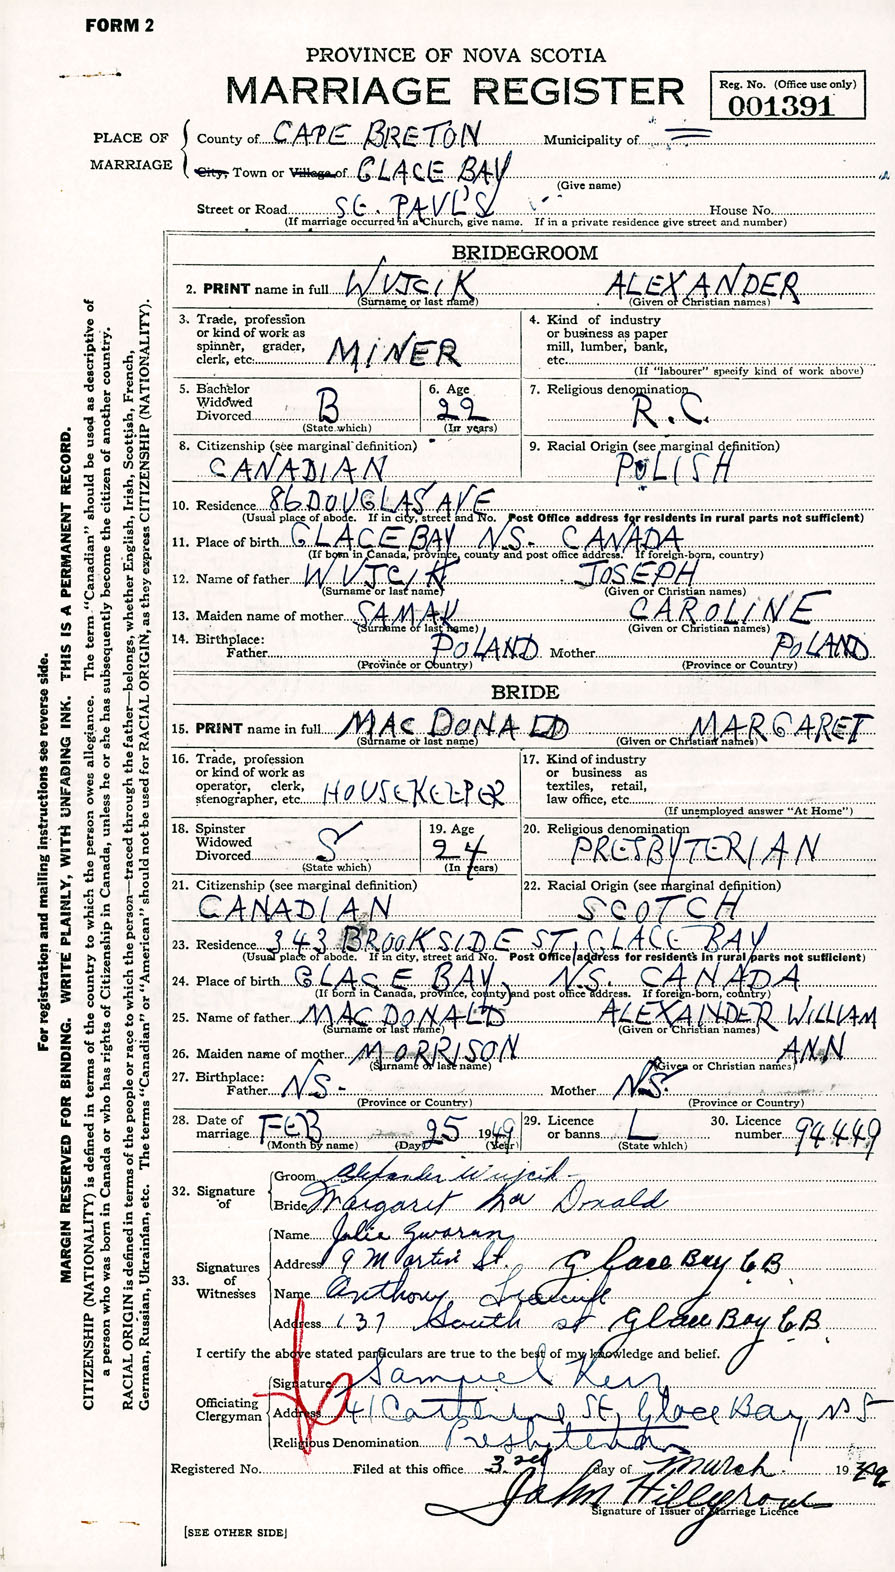 FORM 2
PROVINCE OF NOVA SCOTIA
MARRIAGE REGISTER
Reg. No. (Office use only)
001391
PLACE OF MARRIAGE
County of CAPE BRETON Municipality of
City, Town or Village of GLACE BAY
(Give name)
Street or Road ST. PAUL'S House No.
(If marriage occurred in a Church, give name. If in a private residence give street and number)
BRIDEGROOM
2. PRINT name in full WUJCIK ALEXANDER
(Surname or last name) (Given or Christian names)
3. Trade, profession or kind of work as spinner, grader, clerk, etc. MINER
4. Kind of industry or business as paper mill, lumber, bank, etc.
(If "labourer" specify kind of work above)
5. Bachelor Widowed Divorced B
(State which)
6. Age 22
(In years)
7. Religious denomination R.C.
8. Citizenship (see marginal definition) CANADIAN
9. Racial Origin (see marginal definition) POLISH
10. Residence 86 DOUGLAS AVE
(Usual place of abode. If in city, street and No. Post Office address for residents in rural parts not sufficient)
11. Place of birth GLACE BAY N.S. CANADA
(If born in Canada, province, county and post office address. If foreign-born, country)
12. Name of father WUJCIK JOSEPH
(Surname or last name) (Given or Christian names)
13. Maiden name of mother SAMAK CAROLINE
(Surname or last name) (Given or Christian names)
14. Birthplace:
Father POLAND Mother POLAND
(Province or Country) (Province or Country)
BRIDE
15. PRINT name in full MACDONALD MARGARET
(Surname or last name) (Given or Christian names)
16. Trade, profession or kind of work as operator, clerk, stenographer, etc. HOUSEKEEPER
17. Kind of industry or business as textiles, retail, law office, etc.
(If unemployed answer "At Home")
18. Spinster Widowed Divorced S
(State which)
19. Age 24
(In years)
20. Religious denomination PRESBYTERIAN
21. Citizenship (see marginal definition) CANADIAN
22. Racial Origin (see marginal definition) SCOTCH
23. Residence 343 BROOKSIDE ST, GLACE BAY
(Usual place of abode. If in city, street and No. Post Office address for residents in rural parts not sufficient)
24. Place of birth GLACE BAY, N.S. CANADA
(If born in Canada, province, county and post office address. If foreign-born, country)
25. Name of father MACDONALD ALEXANDER WILLIAM
(Surname or last name) (Given or Christian names)
26. Maiden name of mother MORRISON ANN
(Surname or last name) (Given or Christian names)
27. Birthplace:
Father N.S. Mother N.S.
(Province or Country) (Province or Country)
28. Date of marriage FEB 25 1949
(Month by name) (Day) (Year)
29. Licence or banns L
(State which)
30. Licence number 94449
32. Signature of
Groom Alexander Wujcik
Bride Margaret MacDonald
33. Signatures of Witnesses
Name Julie
Address 9 Martin St. Glace Bay C.B.
Name Anthony
Address 137 South St Glace Bay C.B.
I certify the above stated particulars are true to the best of my knowledge and belief.
Officiating Clergyman
Signature Samuel Kerr
Address 41 Catherine St, Glace Bay, N S
Religious Denomination Presbyterian
Registered No. Filed at this office 3rd day of March 1949
John Hillgrove
Signature of Issuer of Marriage Licence
[SEE OTHER SIDE]
For registration and mailing instructions see reverse side.
MARGIN RESERVED FOR BINDING. WRITE PLAINLY, WITH UNFADING INK. THIS IS A PERMANENT RECORD.
CITIZENSHIP (NATIONALITY) is defined in terms of the country to which the person owes allegiance. The term "Canadian" should be used as descriptive of
a person who was born in Canada or who has rights of Citizenship in Canada, unless he or she has subsequently become the citizen of another country.
RACIAL ORIGIN is defined in terms of the people or race to which the person—traced through the father—belongs, whether English, Irish, Scottish, French,
German, Russian, Ukrainian, etc. The terms "Canadian" or "American" should not be used for RACIAL ORIGIN, as they express CITIZENSHIP (NATIONALITY).